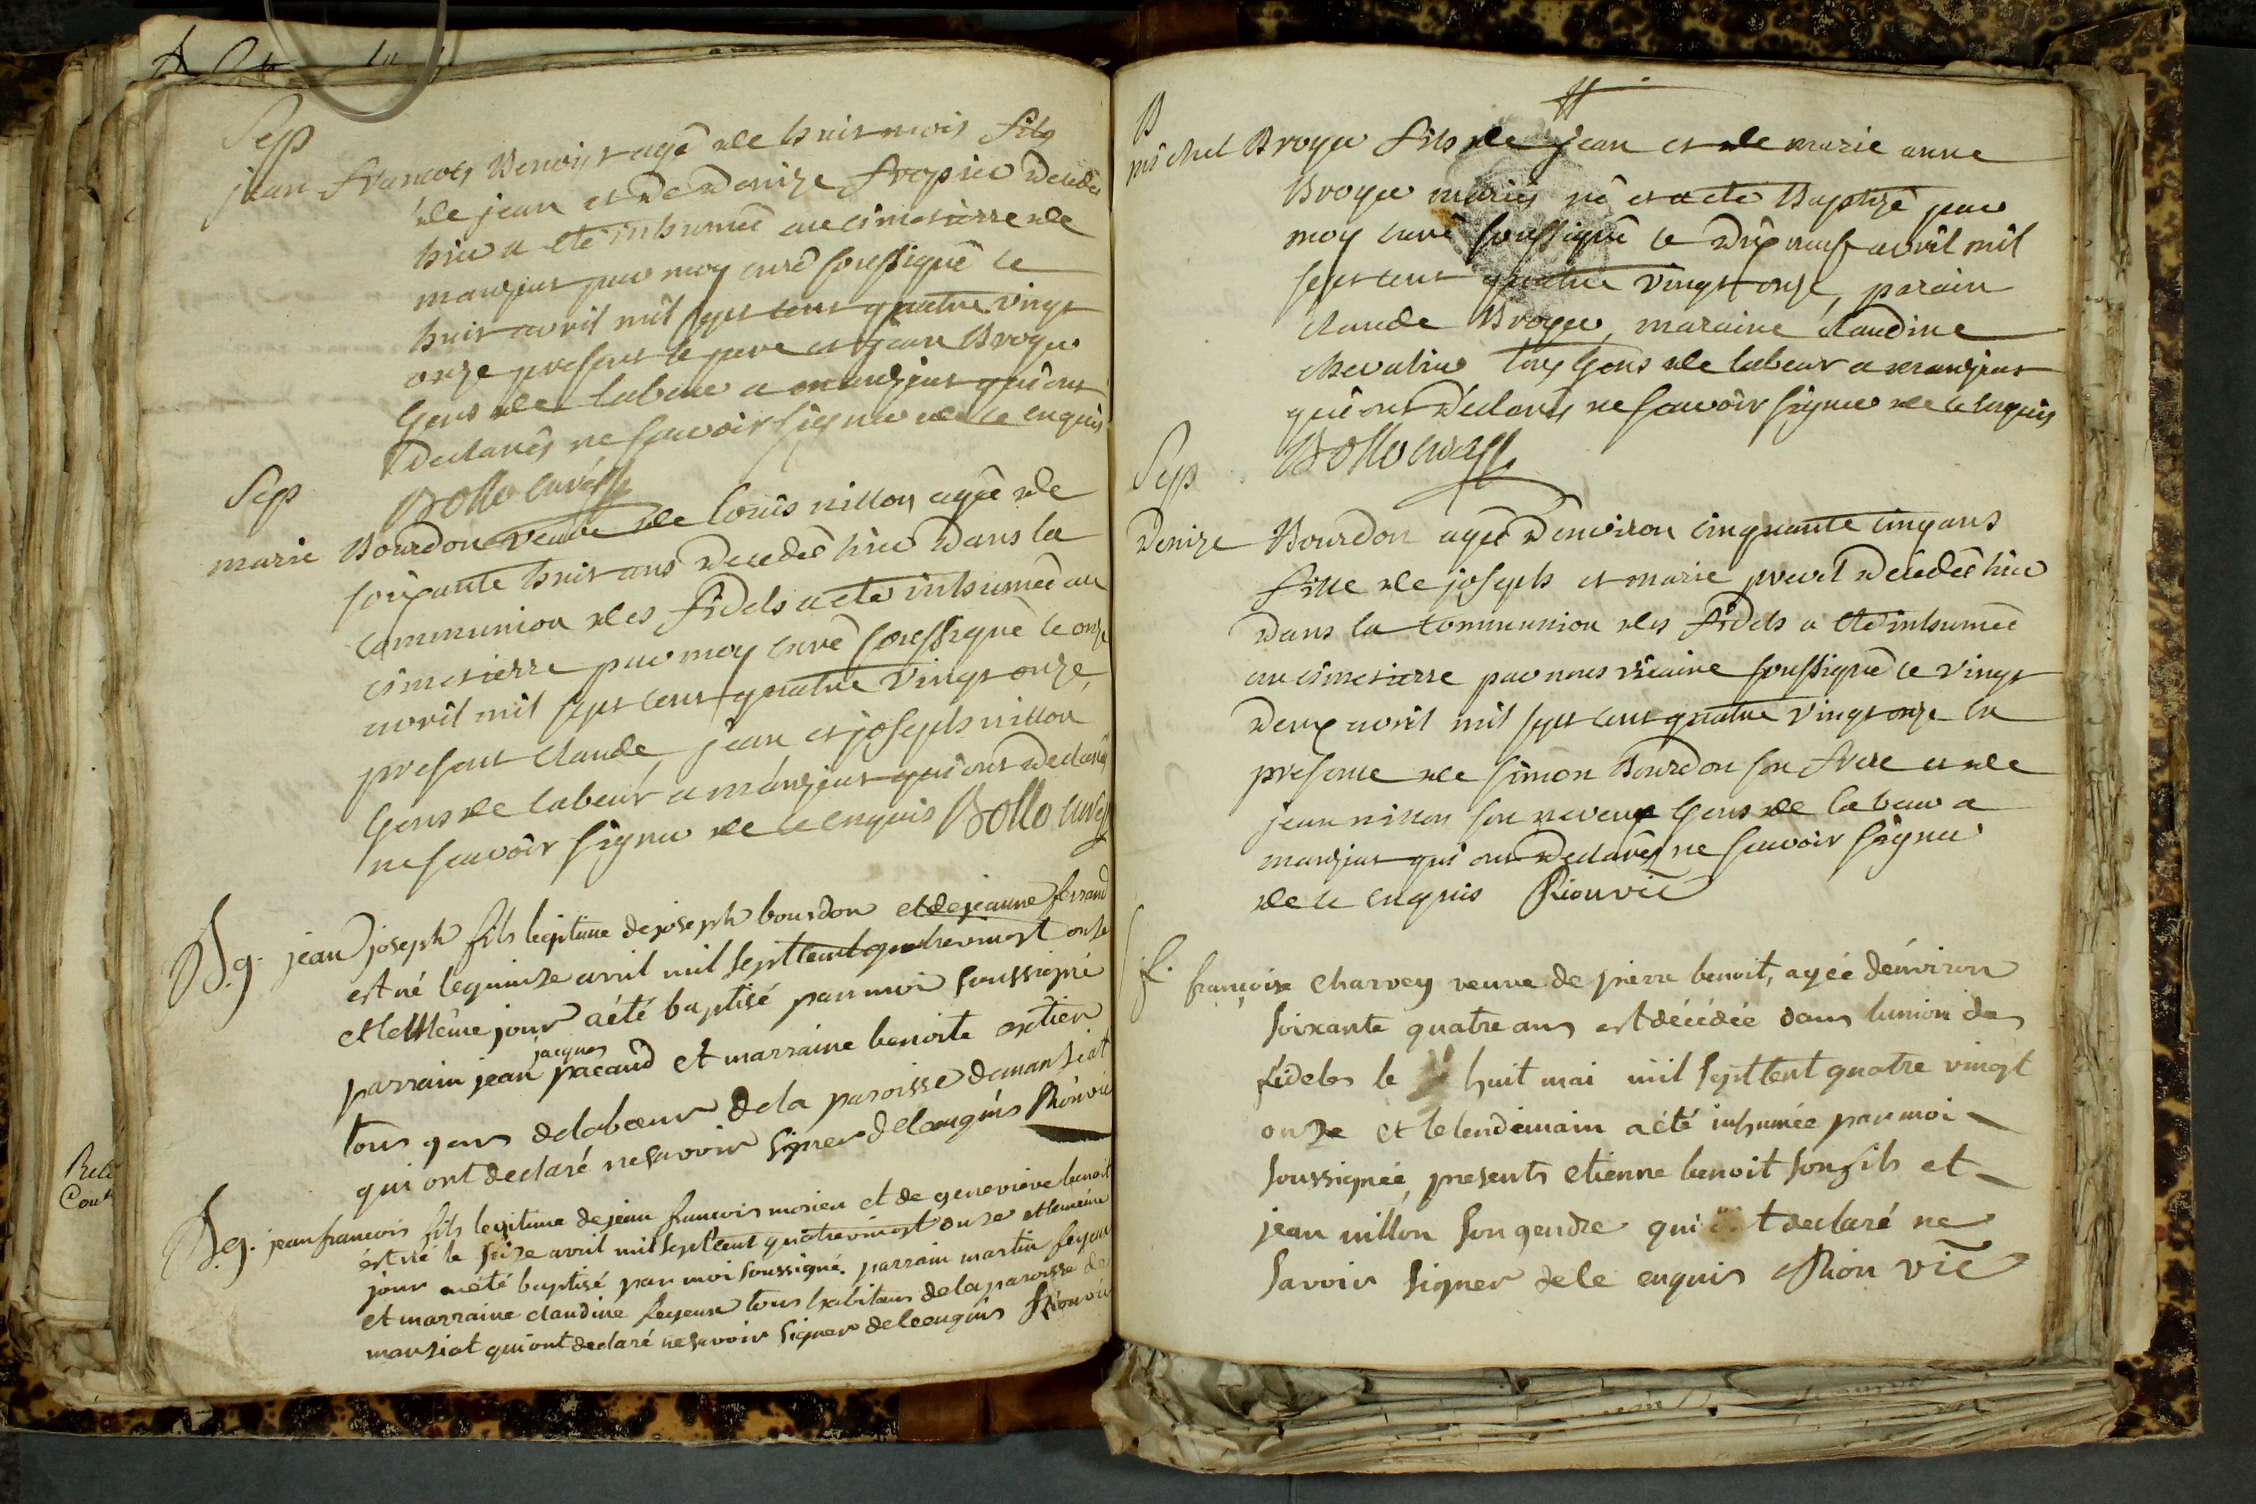 Sep
jean francois Benoist agé de huit mois fils
de jean et de Denize decedé
hier a eté inhumé au cimetierre de
manziat par moy curé soussigné le
huit avril mil sept cent quatre vingt
onze present le pere et jean Broyer
Gens de labeur a manziat qui ont
declarés ne scavoir signer de ce enquis
Bollo curé
Sep
marie Bourdon veuve de louis nillon agée de
soixante huit ans decedée hier dans la
communion des fidels a eté inhumée au
cimetierre par moy curé soussigné le onze
avril mil sept cent quatre vingt onze,
present claude, jean et joseph nillon
Gens de labeur a manziat qui ont declarés
ne scavoir signer de ce enquis Bollo curé
B.g. jean joseph fils legitime de joseph bourdon et de jeanne ferrand
est né le quinze avril mil sept cent quatrevingt onze
et le même jour a été baptisé par moi soussigné
jacques
parrain jean pacaud et marraine benoite
tous gens de labeur de la paroisse de manziat
qui ont declaré ne savoir signer de le enquis Rion vic
B.g. jean francois fils legitime de jean francois morier et de genevieve benoit
est né le seize avril mil sept cent quatrevingt onze et le même
jour a été baptisé par moi soussigné. parrain martin feyeux
et marraine claudine feyeux tous habitans de la paroisse de
manziat qui ont declaré ne savoir signer de le enquis Rion vic
B
michel Broyer fils de jean et de marie anne
Broyer mariés né et a eté Baptizé par
moy curé soussigné le dix neuf avril mil
sept cent quatre vingt onze, parain
claude Broyer, maraine claudine
chevalier tous Gens de labeur a manziat
qui ont declarés ne scavoir signer de ce enquis
Bollo curé
Sep
Denize Bourdon agée d'environ cinquante cinq ans
fille de joseph et marie prevel decedée hier
dans la communion des fidels a eté inhumée
au cimetierre par nous vicaire soussigné le vingt
deux avril mil sept cent quatre vingt onze en
presence de simon Bourdon son frere et de
jean nillon son neveux Gens de labeur a
manziat qui ont declarés ne scavoir signer
de ce enquis Rion vic
f. françoise charvey veuve de pierre benoit, agée d'environ
soixante quatre ans est décédée dans l'union des
fideles le huit mai mil sept cent quatre vingt
onze et le lendemain a été inhumée par moi
soussignée, presents etienne benoit son fils et
jean nillon son gendre qui ont declaré ne
savoir signer de le enquis Rion vic